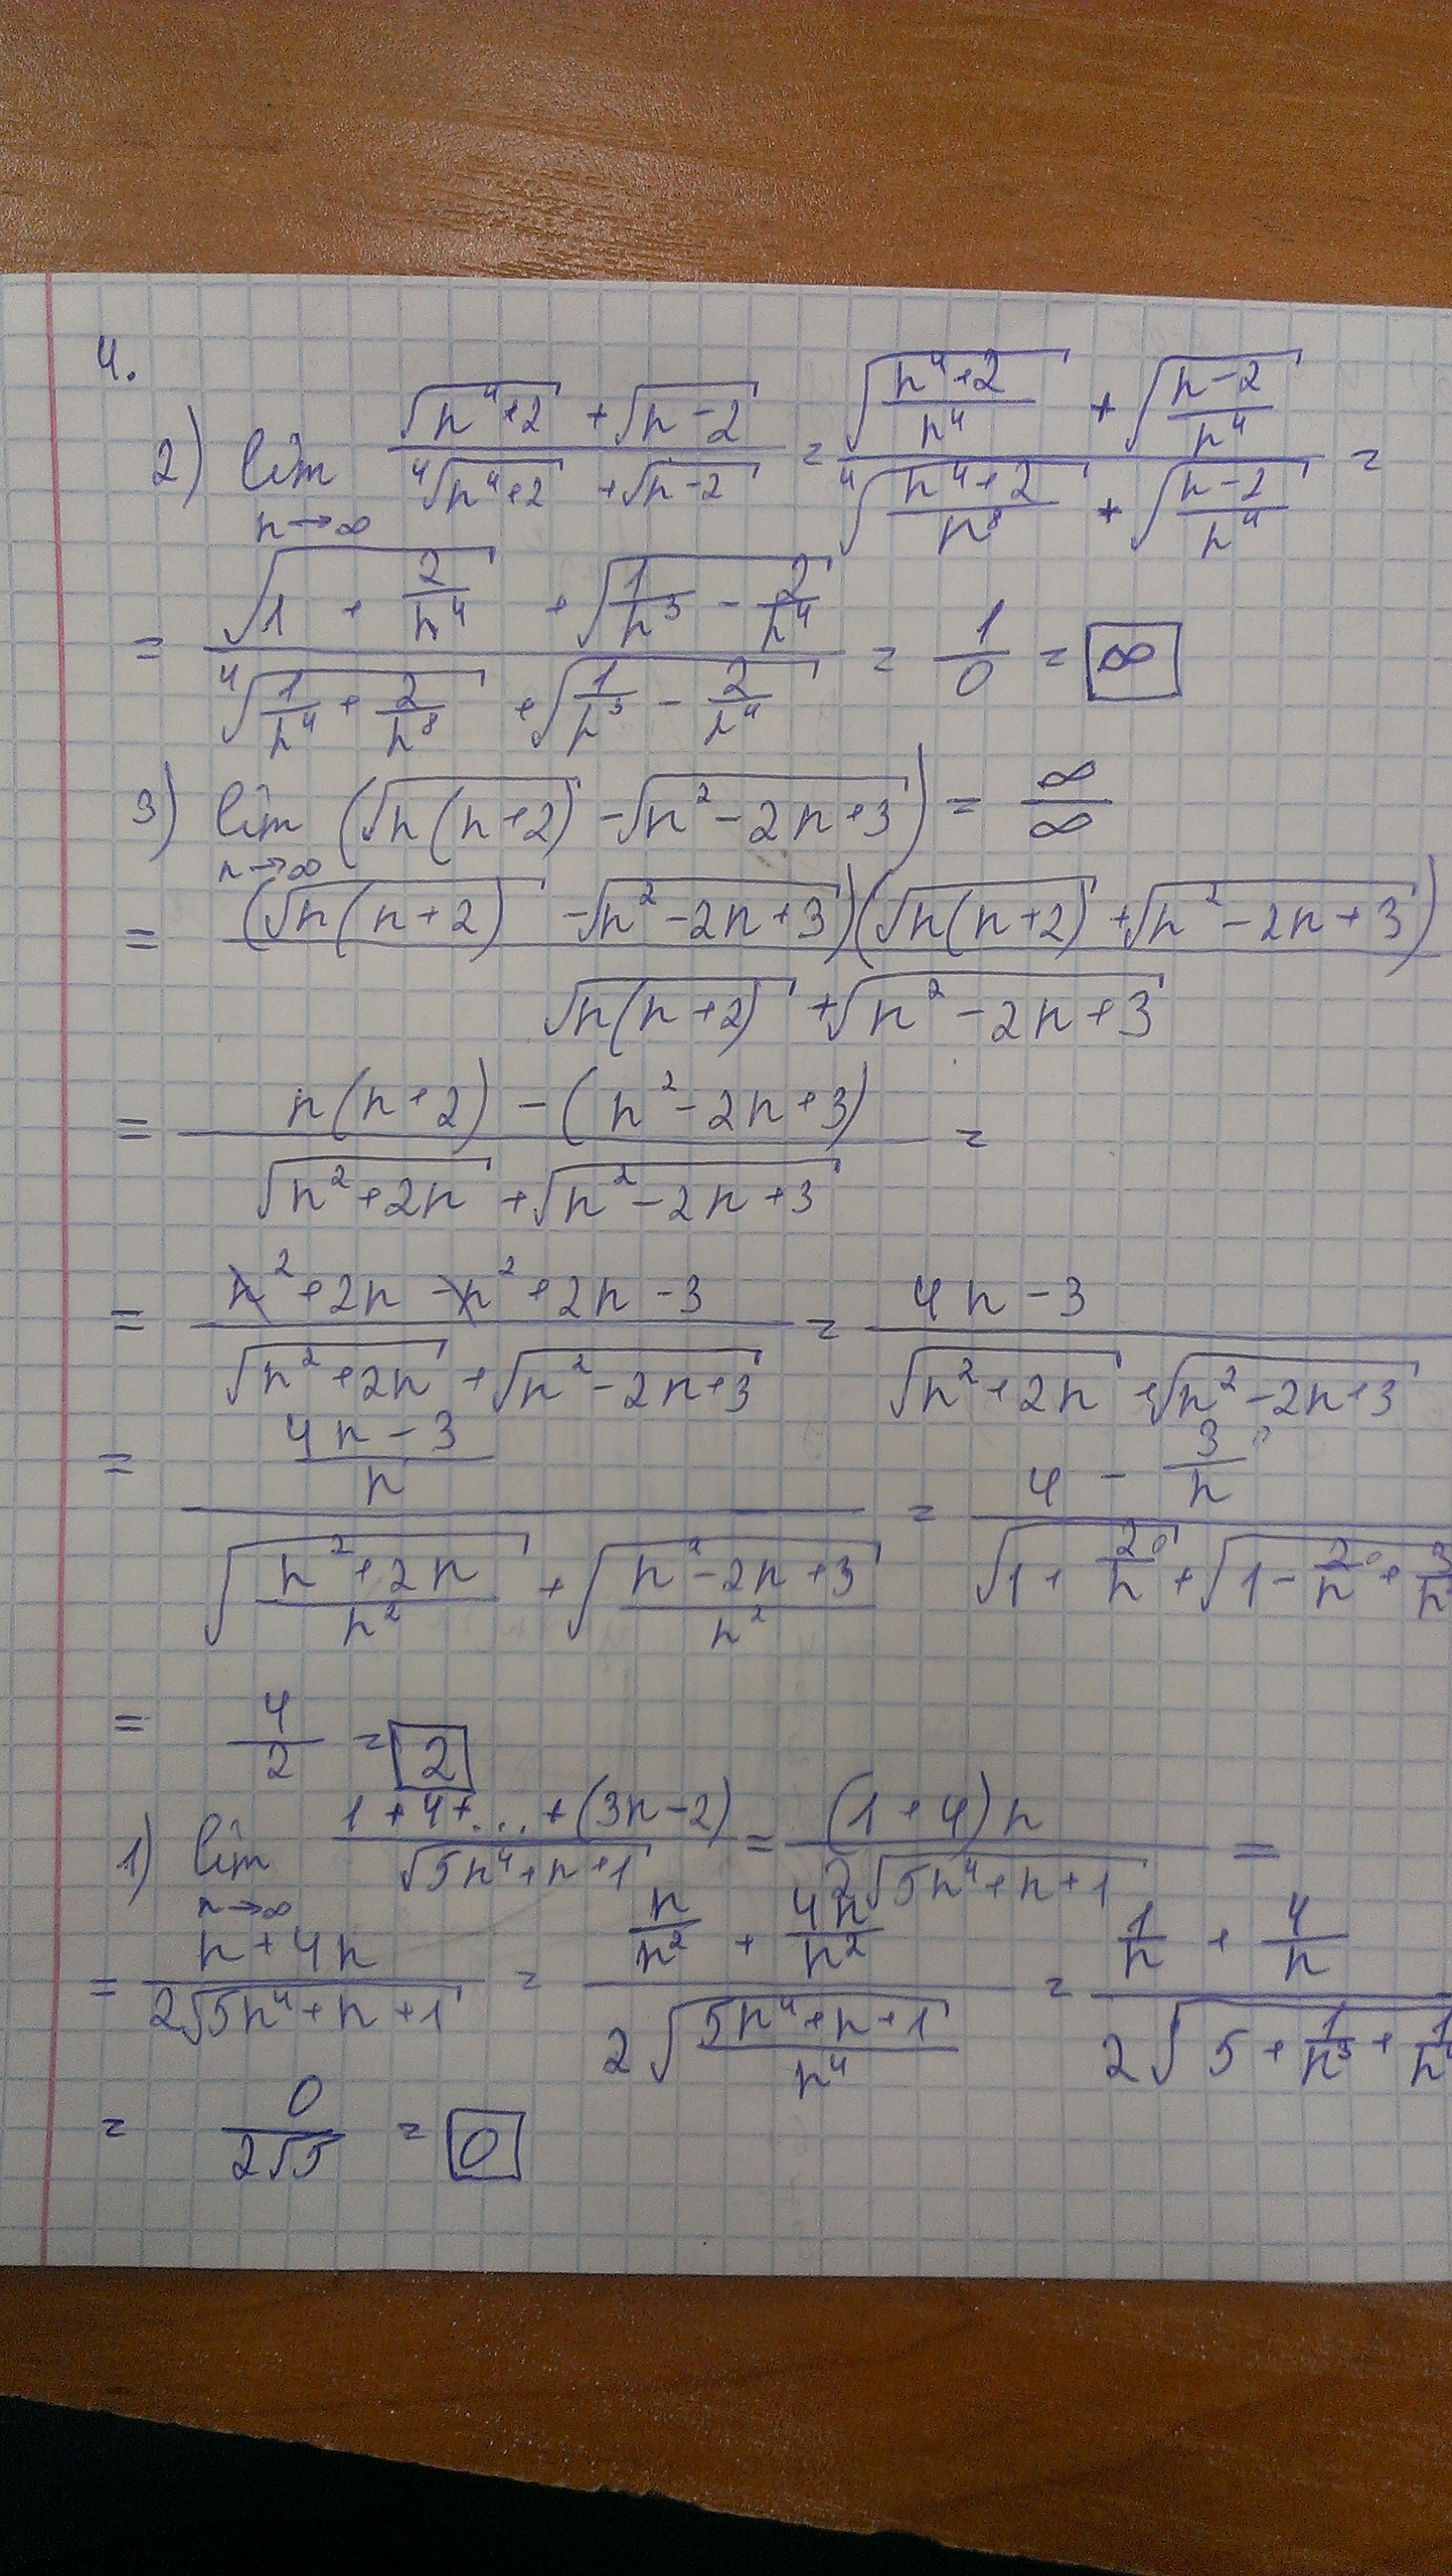 4.
2) lim n→∞ (√(n⁴+2) + √(n-2)) / (⁴√(n⁴+2) + √(n-2)) = (√((n⁴+2)/n⁴) + √((n-2)/n⁴)) / (⁴√((n⁴+2)/n⁸) + √((n-2)/n⁴)) =
= (√(1 + 2/n⁴) + √(1/n³ - 2/n⁴)) / (⁴√(1/n⁴ + 2/n⁸) + √(1/n³ - 2/n⁴)) = 1/0 = ∞
3) lim n→∞ (√(n(n+2)) - √(n²-2n+3)) = ∞/∞
= (√(n(n+2)) - √(n²-2n+3))(√(n(n+2)) + √(n²-2n+3)) / (√(n(n+2)) + √(n²-2n+3))
= (n(n+2) - (n²-2n+3)) / (√(n²+2n) + √(n²-2n+3)) =
= (n²+2n-n²+2n-3) / (√(n²+2n) + √(n²-2n+3)) = (4n-3) / (√(n²+2n) + √(n²-2n+3))
= ((4n-3)/n) / (√((n²+2n)/n²) + √((n²-2n+3)/n²)) = (4 - 3/n) / (√(1 + 2/n) + √(1 - 2/n + 3/n²))
= 4/2 = 2
1) lim n→∞ (1+4+...+(3n-2)) / √(5n⁴+n+1) = (1+4)n / (2√(5n⁴+n+1)) =
= (n+4n) / (2√(5n⁴+n+1)) = (n/n² + 4n/n²) / (2√((5n⁴+n+1)/n⁴)) = (1/n + 4/n) / (2√(5 + 1/n³ + 1/n⁴))
= 0/(2√5) = 0